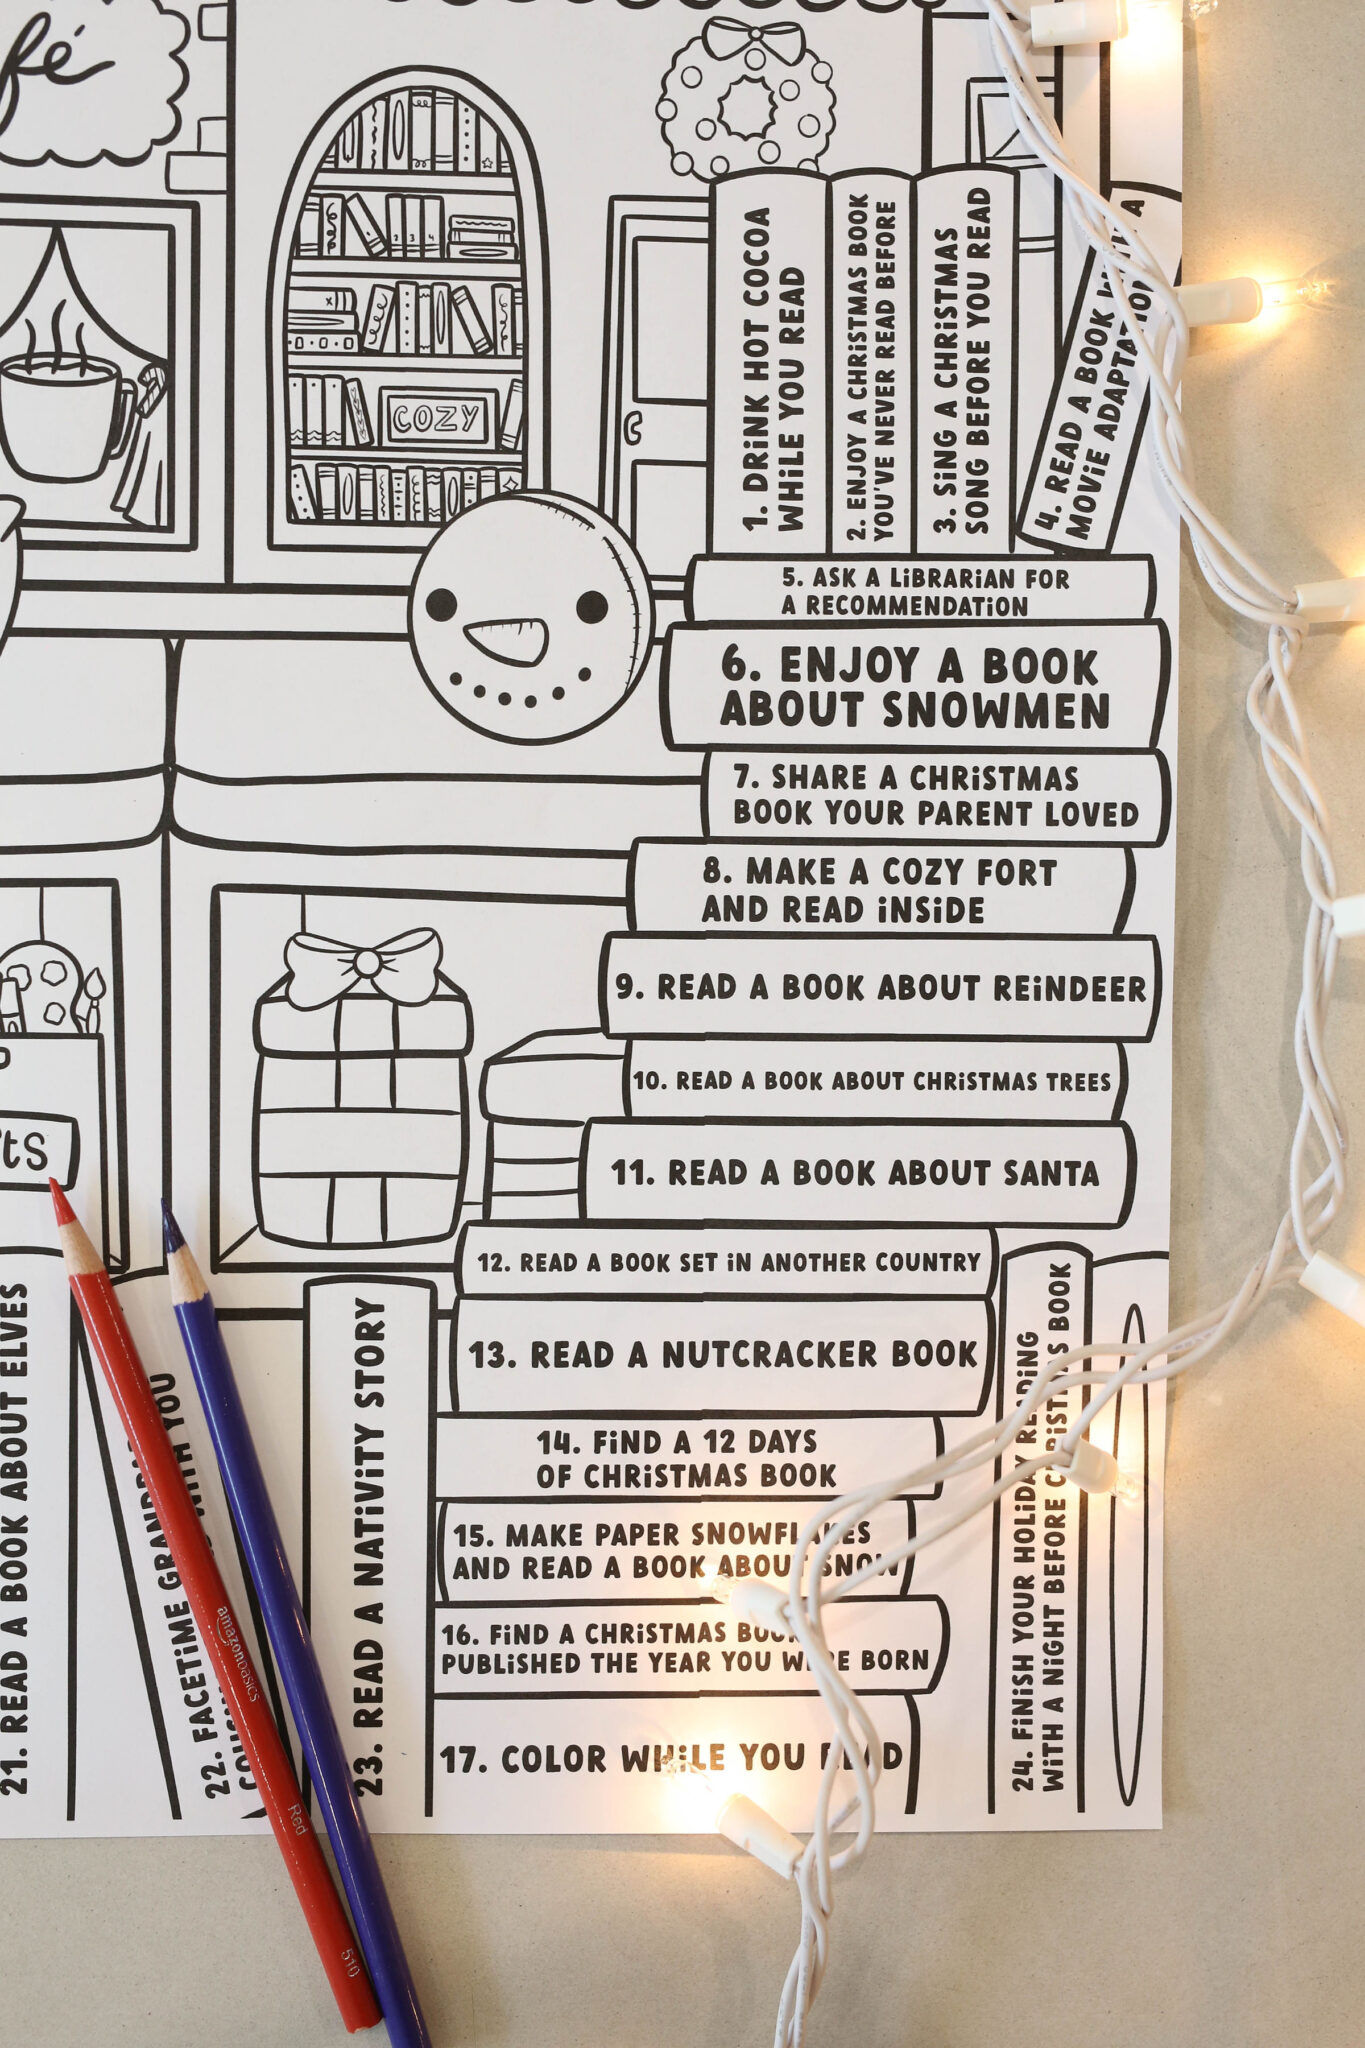 fé
COZY
1. DRiNK HOT COCOA
WHiLE YOU READ
2. ENJOY A CHRiSTMAS BOOK
YOU'VE NEVER READ BEFORE
3. SiNG A CHRiSTMAS
SONG BEFORE YOU READ
4. READ A BOOK WiTH A
MOViE ADAPTATiON
5. ASK A LiBRARiAN FOR
A RECOMMENDATiON
6. ENJOY A BOOK
ABOUT SNOWMEN
7. SHARE A CHRiSTMAS
BOOK YOUR PARENT LOVED
8. MAKE A COZY FORT
AND READ iNSiDE
9. READ A BOOK ABOUT REiNDEER
10. READ A BOOK ABOUT CHRiSTMAS TREES
11. READ A BOOK ABOUT SANTA
12. READ A BOOK SET iN ANOTHER COUNTRY
13. READ A NUTCRACKER BOOK
14. FiND A 12 DAYS
OF CHRiSTMAS BOOK
15. MAKE PAPER SNOWFLAKES
AND READ A BOOK ABOUT SNOW
16. FiND A CHRiSTMAS BOOK
PUBLiSHED THE YEAR YOU WERE BORN
17. COLOR WHiLE YOU READ
ts
21. READ A BOOK ABOUT ELVES
22. FACETiME
WiTH YOU
23. READ A NATiViTY STORY
24. FiNiSH YOUR HOLiDAY READiNG
WiTH A NiGHT BEFORE CHRiSTMAS BOOK
amazonbasics
Red
510